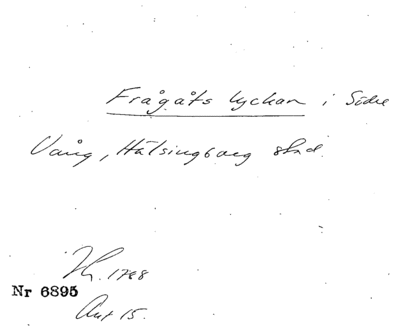 Frågåts lyckan i Södre
Vång, Hälsingborg stad.
H. 1788
Nr 6895
Akt 15.